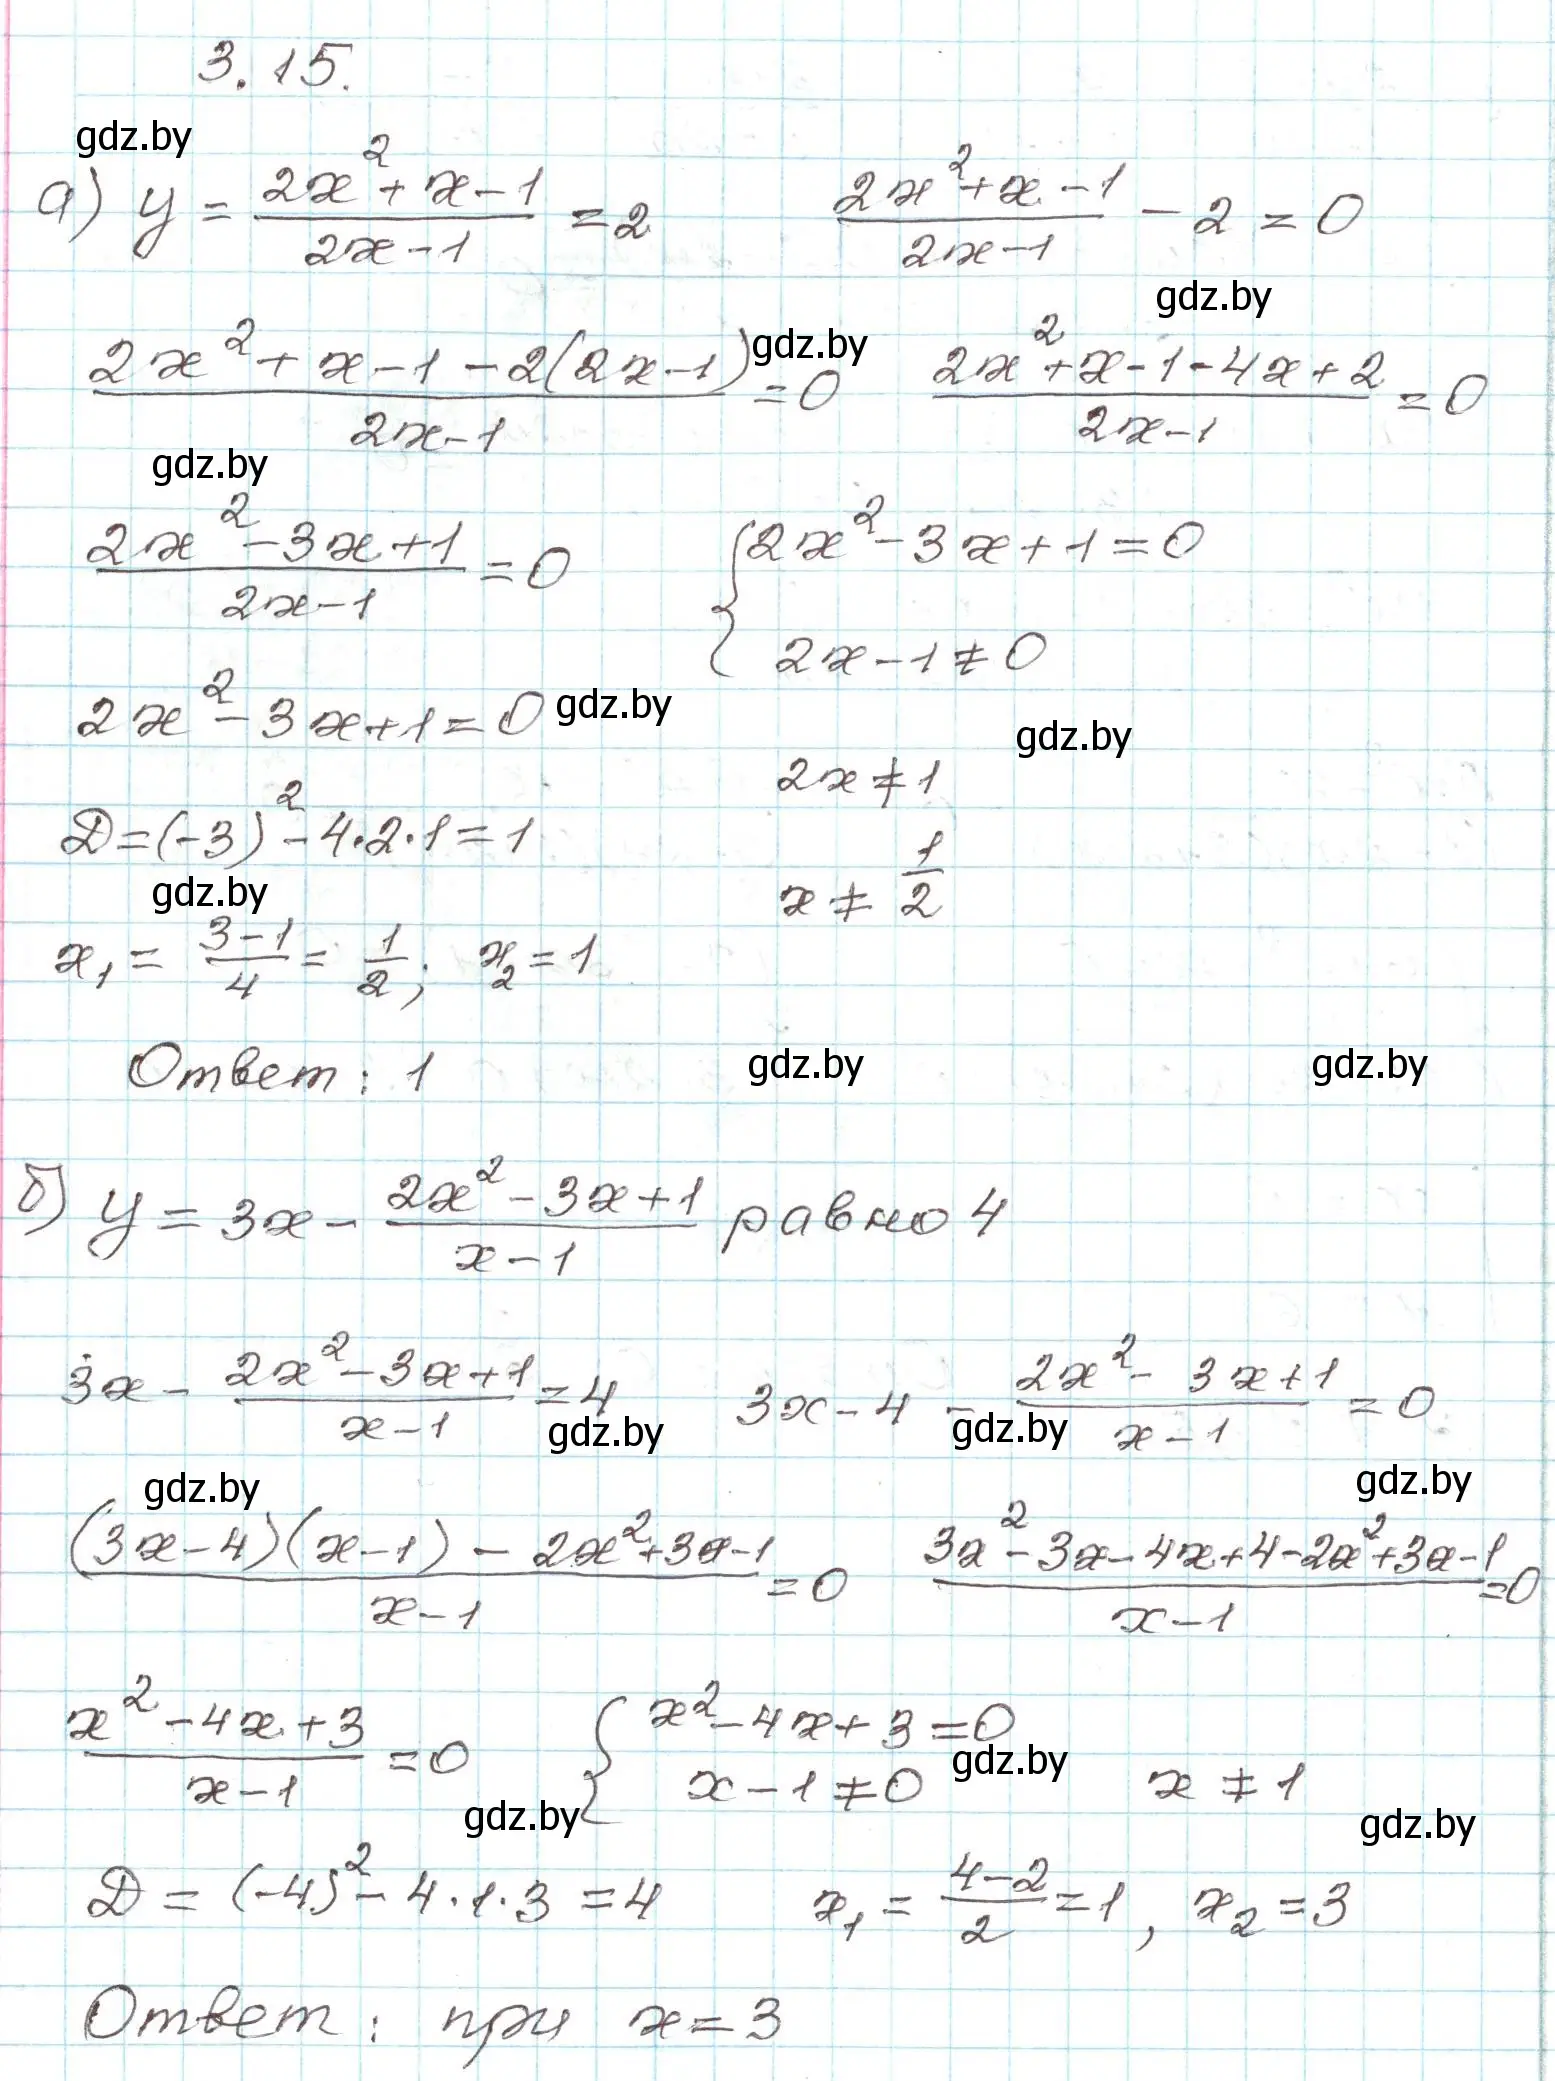 3.15.
gdz.by
а) y = (2x² + x - 1)/(2x - 1) = 2    (2x² + x - 1)/(2x - 1) - 2 = 0
gdz.by
(2x² + x - 1 - 2(2x - 1))/(2x - 1) = 0    gdz.by    (2x² + x - 1 - 4x + 2)/(2x - 1) = 0
gdz.by
(2x² - 3x + 1)/(2x - 1) = 0    { 2x² - 3x + 1 = 0
2x - 1 ≠ 0
2x² - 3x + 1 = 0    gdz.by
gdz.by
2x ≠ 1
D = (-3)² - 4·2·1 = 1
gdz.by
x ≠ 1/2
x₁ = (3 - 1)/4 = 1/2; x₂ = 1
Ответ: 1    gdz.by    gdz.by
б) y = 3x - (2x² - 3x + 1)/(x - 1) равно 4
3x - (2x² - 3x + 1)/(x - 1) = 4    3x - 4 - (2x² - 3x + 1)/(x - 1) = 0
gdz.by    gdz.by
gdz.by    gdz.by
((3x - 4)(x - 1) - 2x² + 3x - 1)/(x - 1) = 0    (3x² - 3x - 4x + 4 - 2x² + 3x - 1)/(x - 1) = 0
(x² - 4x + 3)/(x - 1) = 0    { x² - 4x + 3 = 0
gdz.by
x - 1 ≠ 0    x ≠ 1
gdz.by    gdz.by
D = (-4)² - 4·1·3 = 4    x₁ = (4 - 2)/2 = 1, x₂ = 3
Ответ: при x = 3